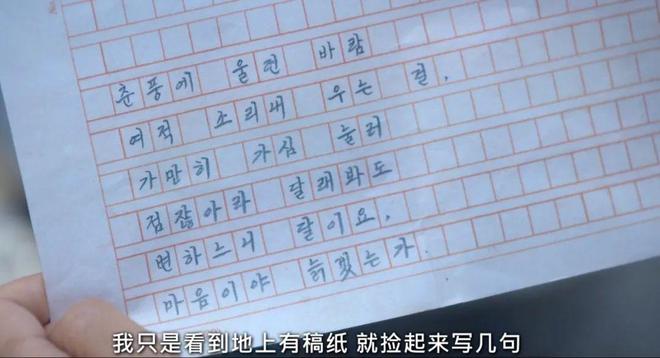 춘풍에 울던 바람
여적 소리내 우는 걸,
가만히 가심 눌러
점잖아라 달래봐도
변하느니 달이요,
마음이야 늙겠는가.
我只是看到地上有稿纸 就捡起来写几句